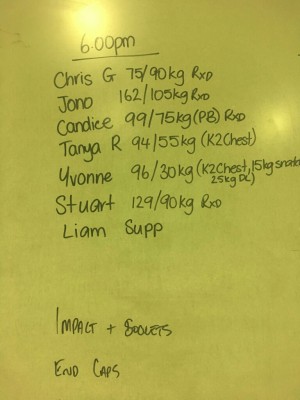 6.00pm
Chris G 75/90kg Rxd
Jono 162/105kg Rxd
Candice 99/75kg (PB) Rxd
Tanya R 94/55kg (K2Chest)
Yvonne 96/30kg (K2Chest, 15kg snatch
25kg DL)
Stuart 129/90kg Rxd
Liam Supp
IMPACT +
END CAPS